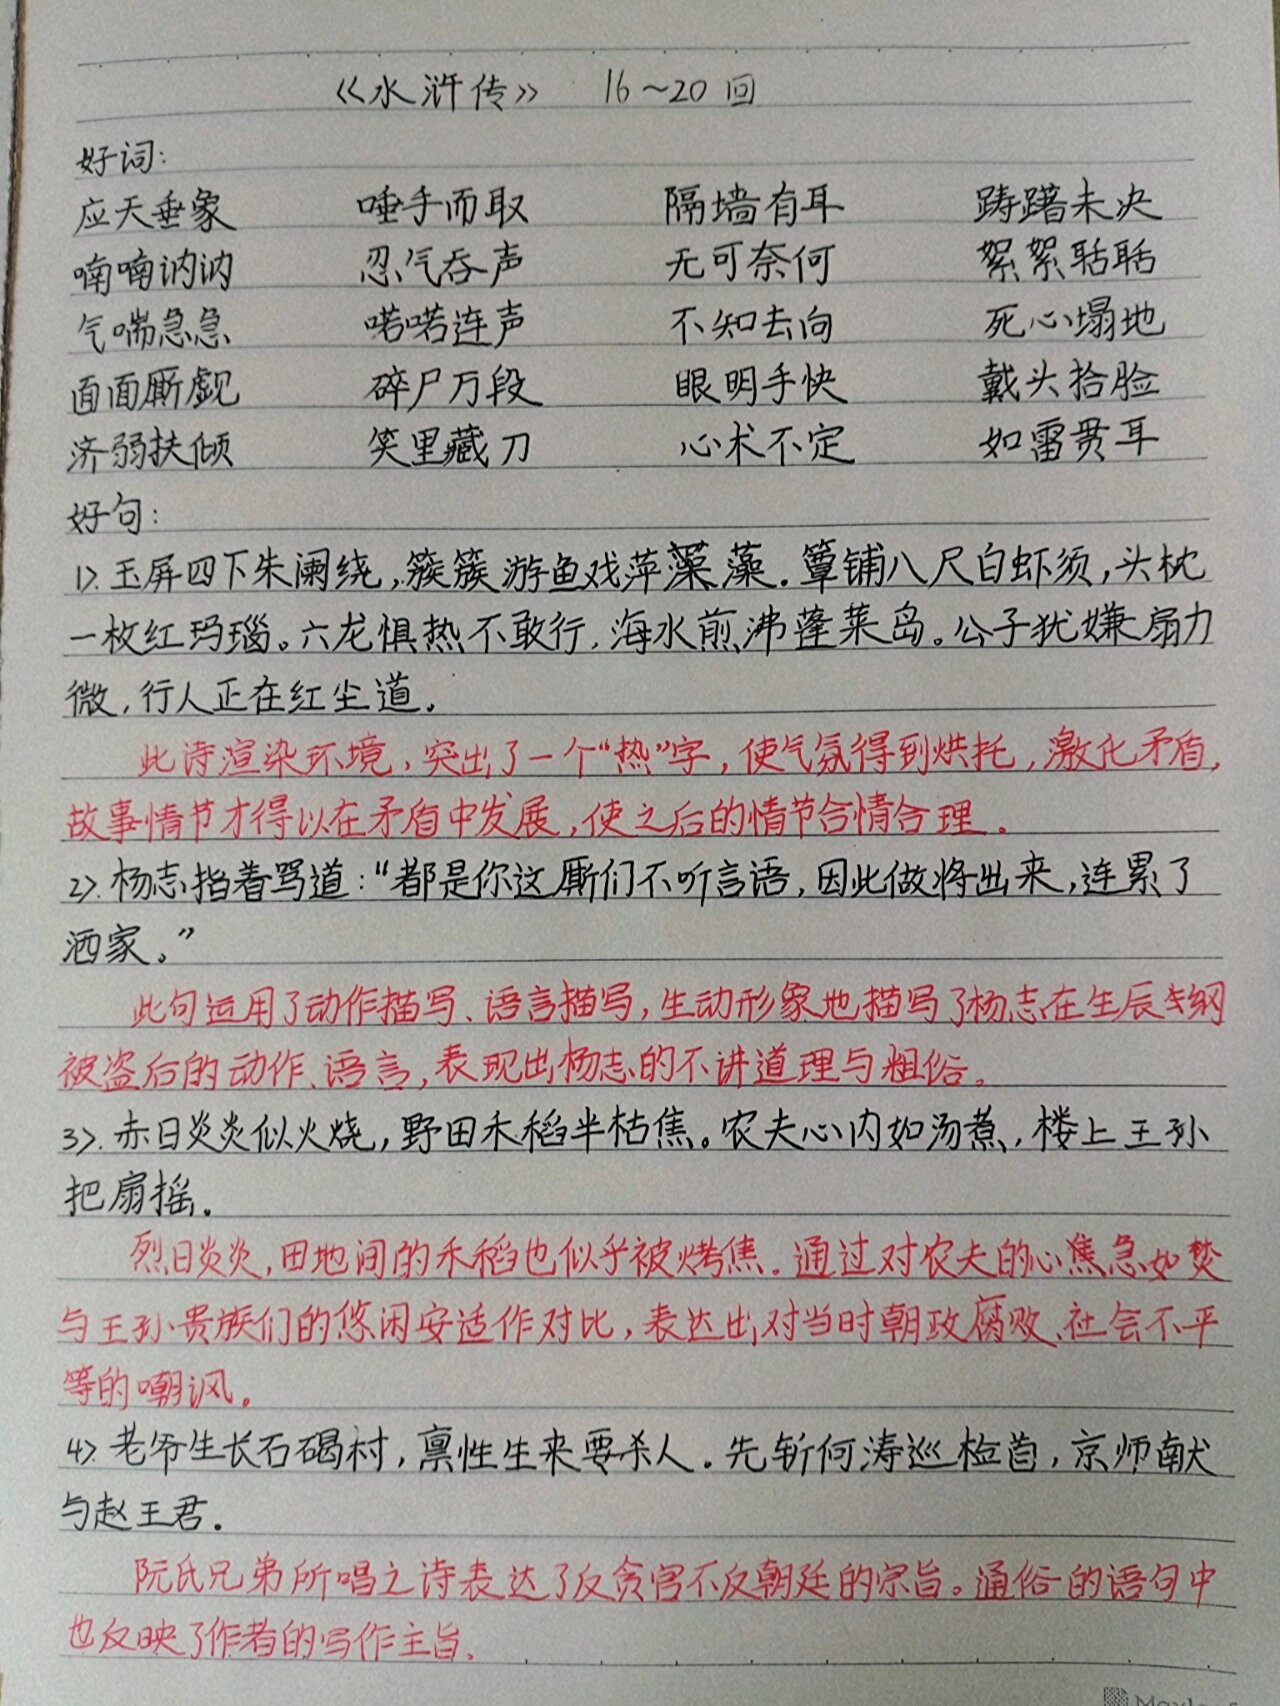 《水浒传》 16~20回
好词:
应天垂象 唾手而取 隔墙有耳 踌躇未决
喃喃讷讷 忍气吞声 无可奈何 絮絮聒聒
气喘急急 喏喏连声 不知去向 死心塌地
面面厮觑 碎尸万段 眼明手快 戴头拾脸
济弱扶倾 笑里藏刀 心术不定 如雷贯耳
好句:
1>.玉屏四下朱阑绕,簇簇游鱼戏萍藻藻.簟铺八尺白虾须,头枕
一枚红玛瑙。六龙惧热不敢行,海水煎沸蓬莱岛。公子犹嫌扇力
微,行人正在红尘道.
此诗渲染环境,突出了一个“热”字,使气氛得到烘托,激化矛盾,
故事情节才得以在矛盾中发展,使之后的情节合情合理.
2>.杨志指着骂道:“都是你这厮们不听言语,因此做将出来,连累了
洒家。”
此句运用了动作描写、语言描写,生动形象地描写了杨志在生辰纲
被盗后的动作、语言,表现出杨志的不讲道理与粗俗。
3>.赤日炎炎似火烧,野田禾稻半枯焦。农夫心内如汤煮,楼上王孙
把扇摇.
烈日炎炎,田地间的禾稻也似乎被烤焦.通过对农夫的心焦急如焚
与王孙贵族们的悠闲安适作对比,表达出对当时朝政腐败、社会不平
等的嘲讽。
4>.老爷生长石碣村,禀性生来要杀人.先斩何涛巡检首,京师献
与赵王君.
阮氏兄弟所唱之诗表达了反贪官不反朝廷的宗旨。通俗的语句中
也反映了作者的写作主旨.